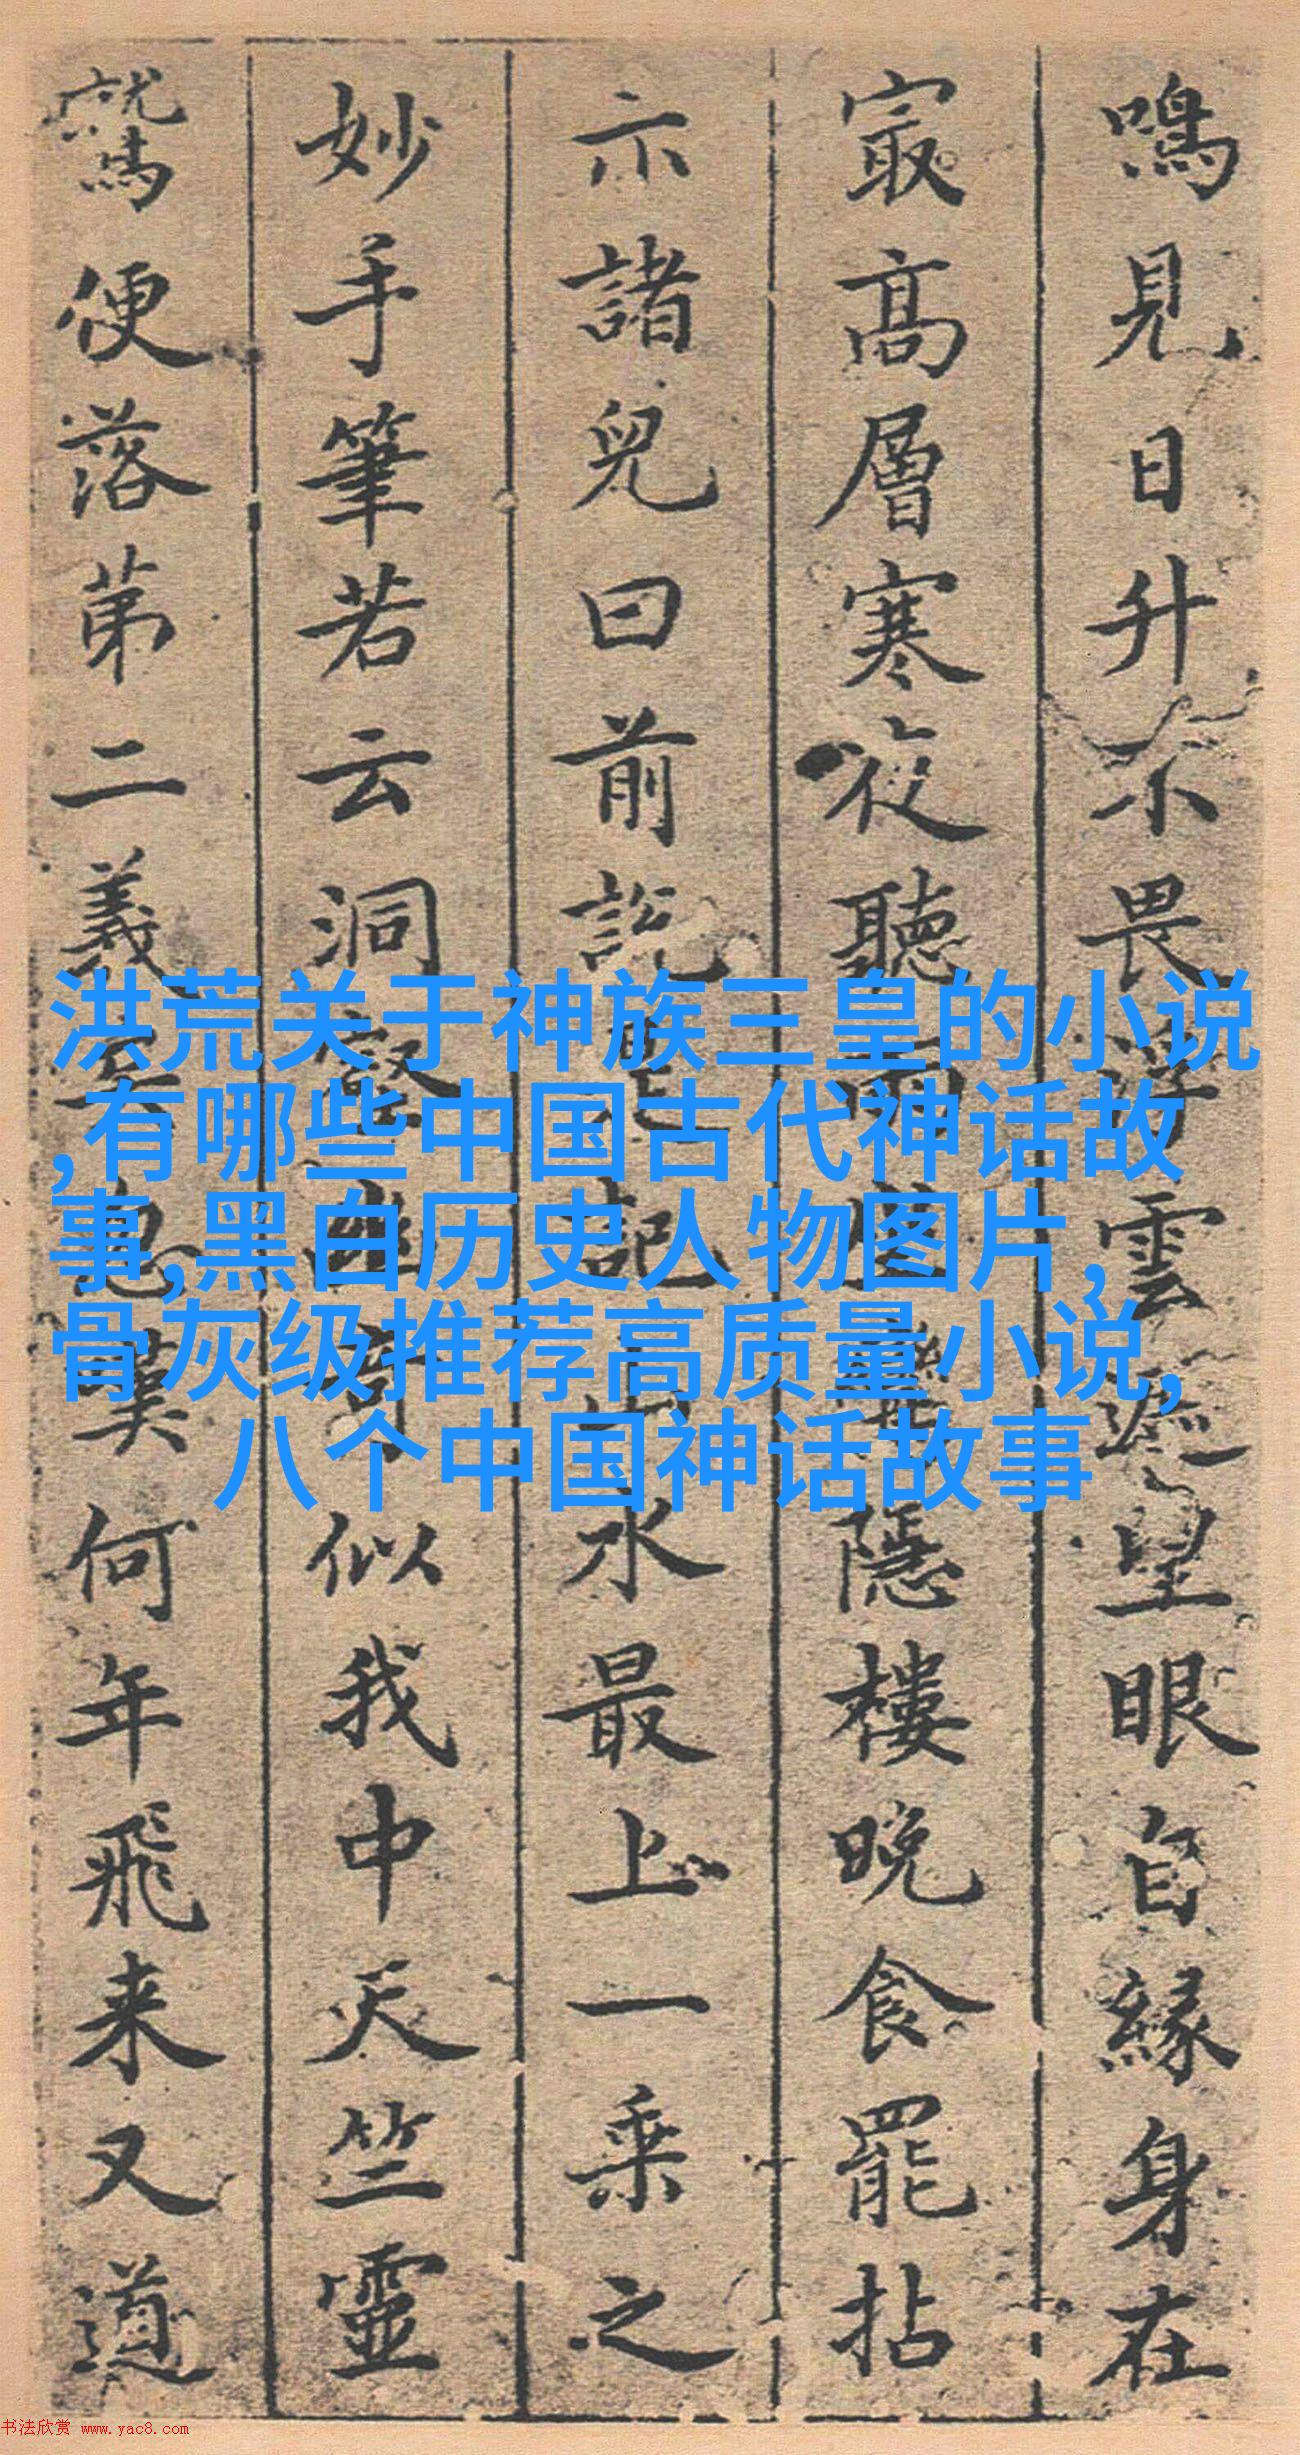 鳴見日升不畏浮雲遮望眼自緣身在
最高層寒夜聽雨隱樓晚食罷拈
示諸兒曰前說是記山水最上一乘之
妙手筆若云洞似我中天竺靈
鷲便落第二義何年飛来又道
洪荒关于神族三皇的小说
,有哪些中国古代神话故
事,黑白历史人物图片,
骨灰级推荐高质量小说,
八个中国神话故事
书法欣赏 www.yac8.com